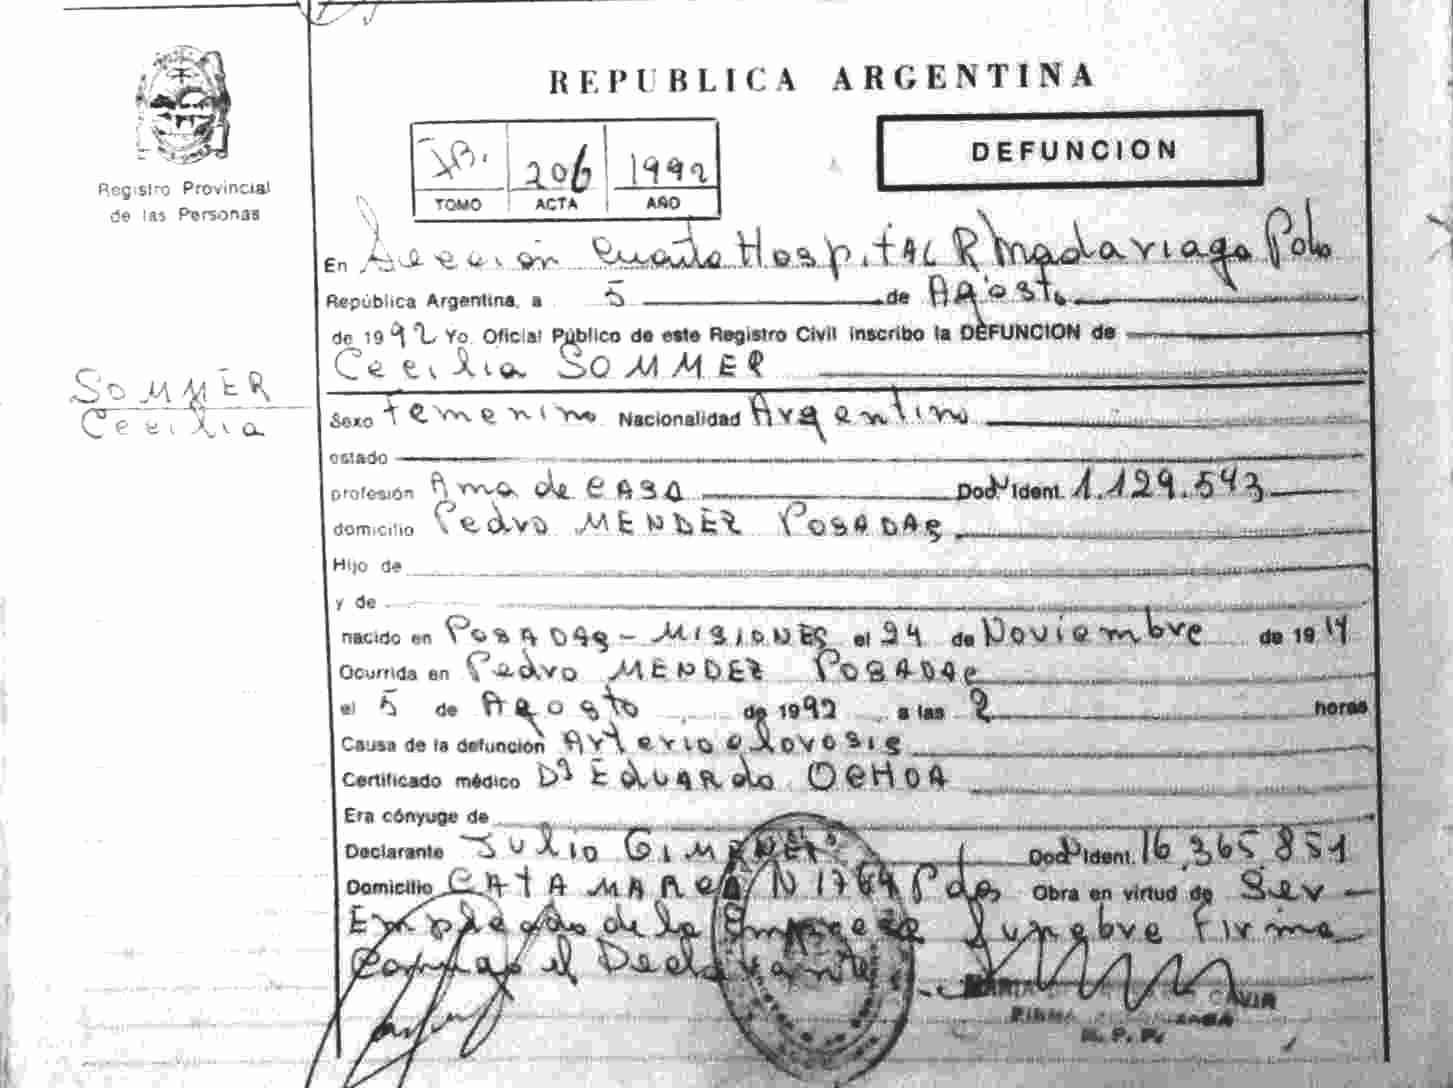 REPUBLICA ARGENTINA
Registro Provincial
de las Personas
206 1992
TOMO ACTA AÑO
DEFUNCION
En Sección Cuarta Hospital R Madariaga
República Argentina, a 5 de Agosto
de 1992 Yo. Oficial Público de este Registro Civil inscribo la DEFUNCION de
Cecilia SOMMER
SOMMER
Cecilia
Sexo Femenino Nacionalidad Argentino
estado
profesión Ama de CASA Doc Ident. 1.129.543
domicilio Pedro MENDEZ POSADAS
Hijo de
y de
nacido en POSADAS - MISIONES el 24 de Noviembre de 1914
Ocurrida en Pedro MENDEZ POSADAS
el 5 de Agosto de 1992 a las 2 horas
Causa de la defunción
Certificado médico Dr Eduardo OCHOA
Era cónyuge de
Declarante Julio GIMENEZ Doc Ident. 16.365.851
Domicilio CATAMARCA N 1764 Pdas Obra en virtud de Ser
Empleado de la Empresa Funebre Firma
el Declarante
MARIA